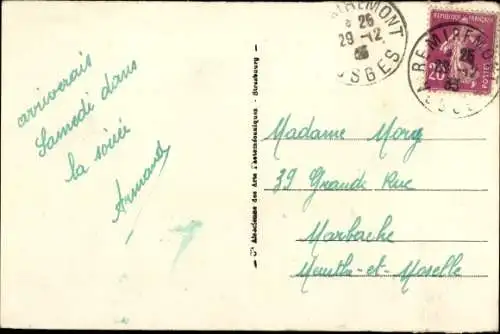 arriverais
Samedi dans
la soirée
Armand
Cie Alsacienne des Arts Photomécaniques - Strasbourg
REMIREMONT
25
29-12
VOSGES
REPUBLIQUE FRANÇAISE
20
POSTES
REMIREMONT
25
Madame Mory
39 Grande Rue
Marbache
Meurthe-et-Moselle